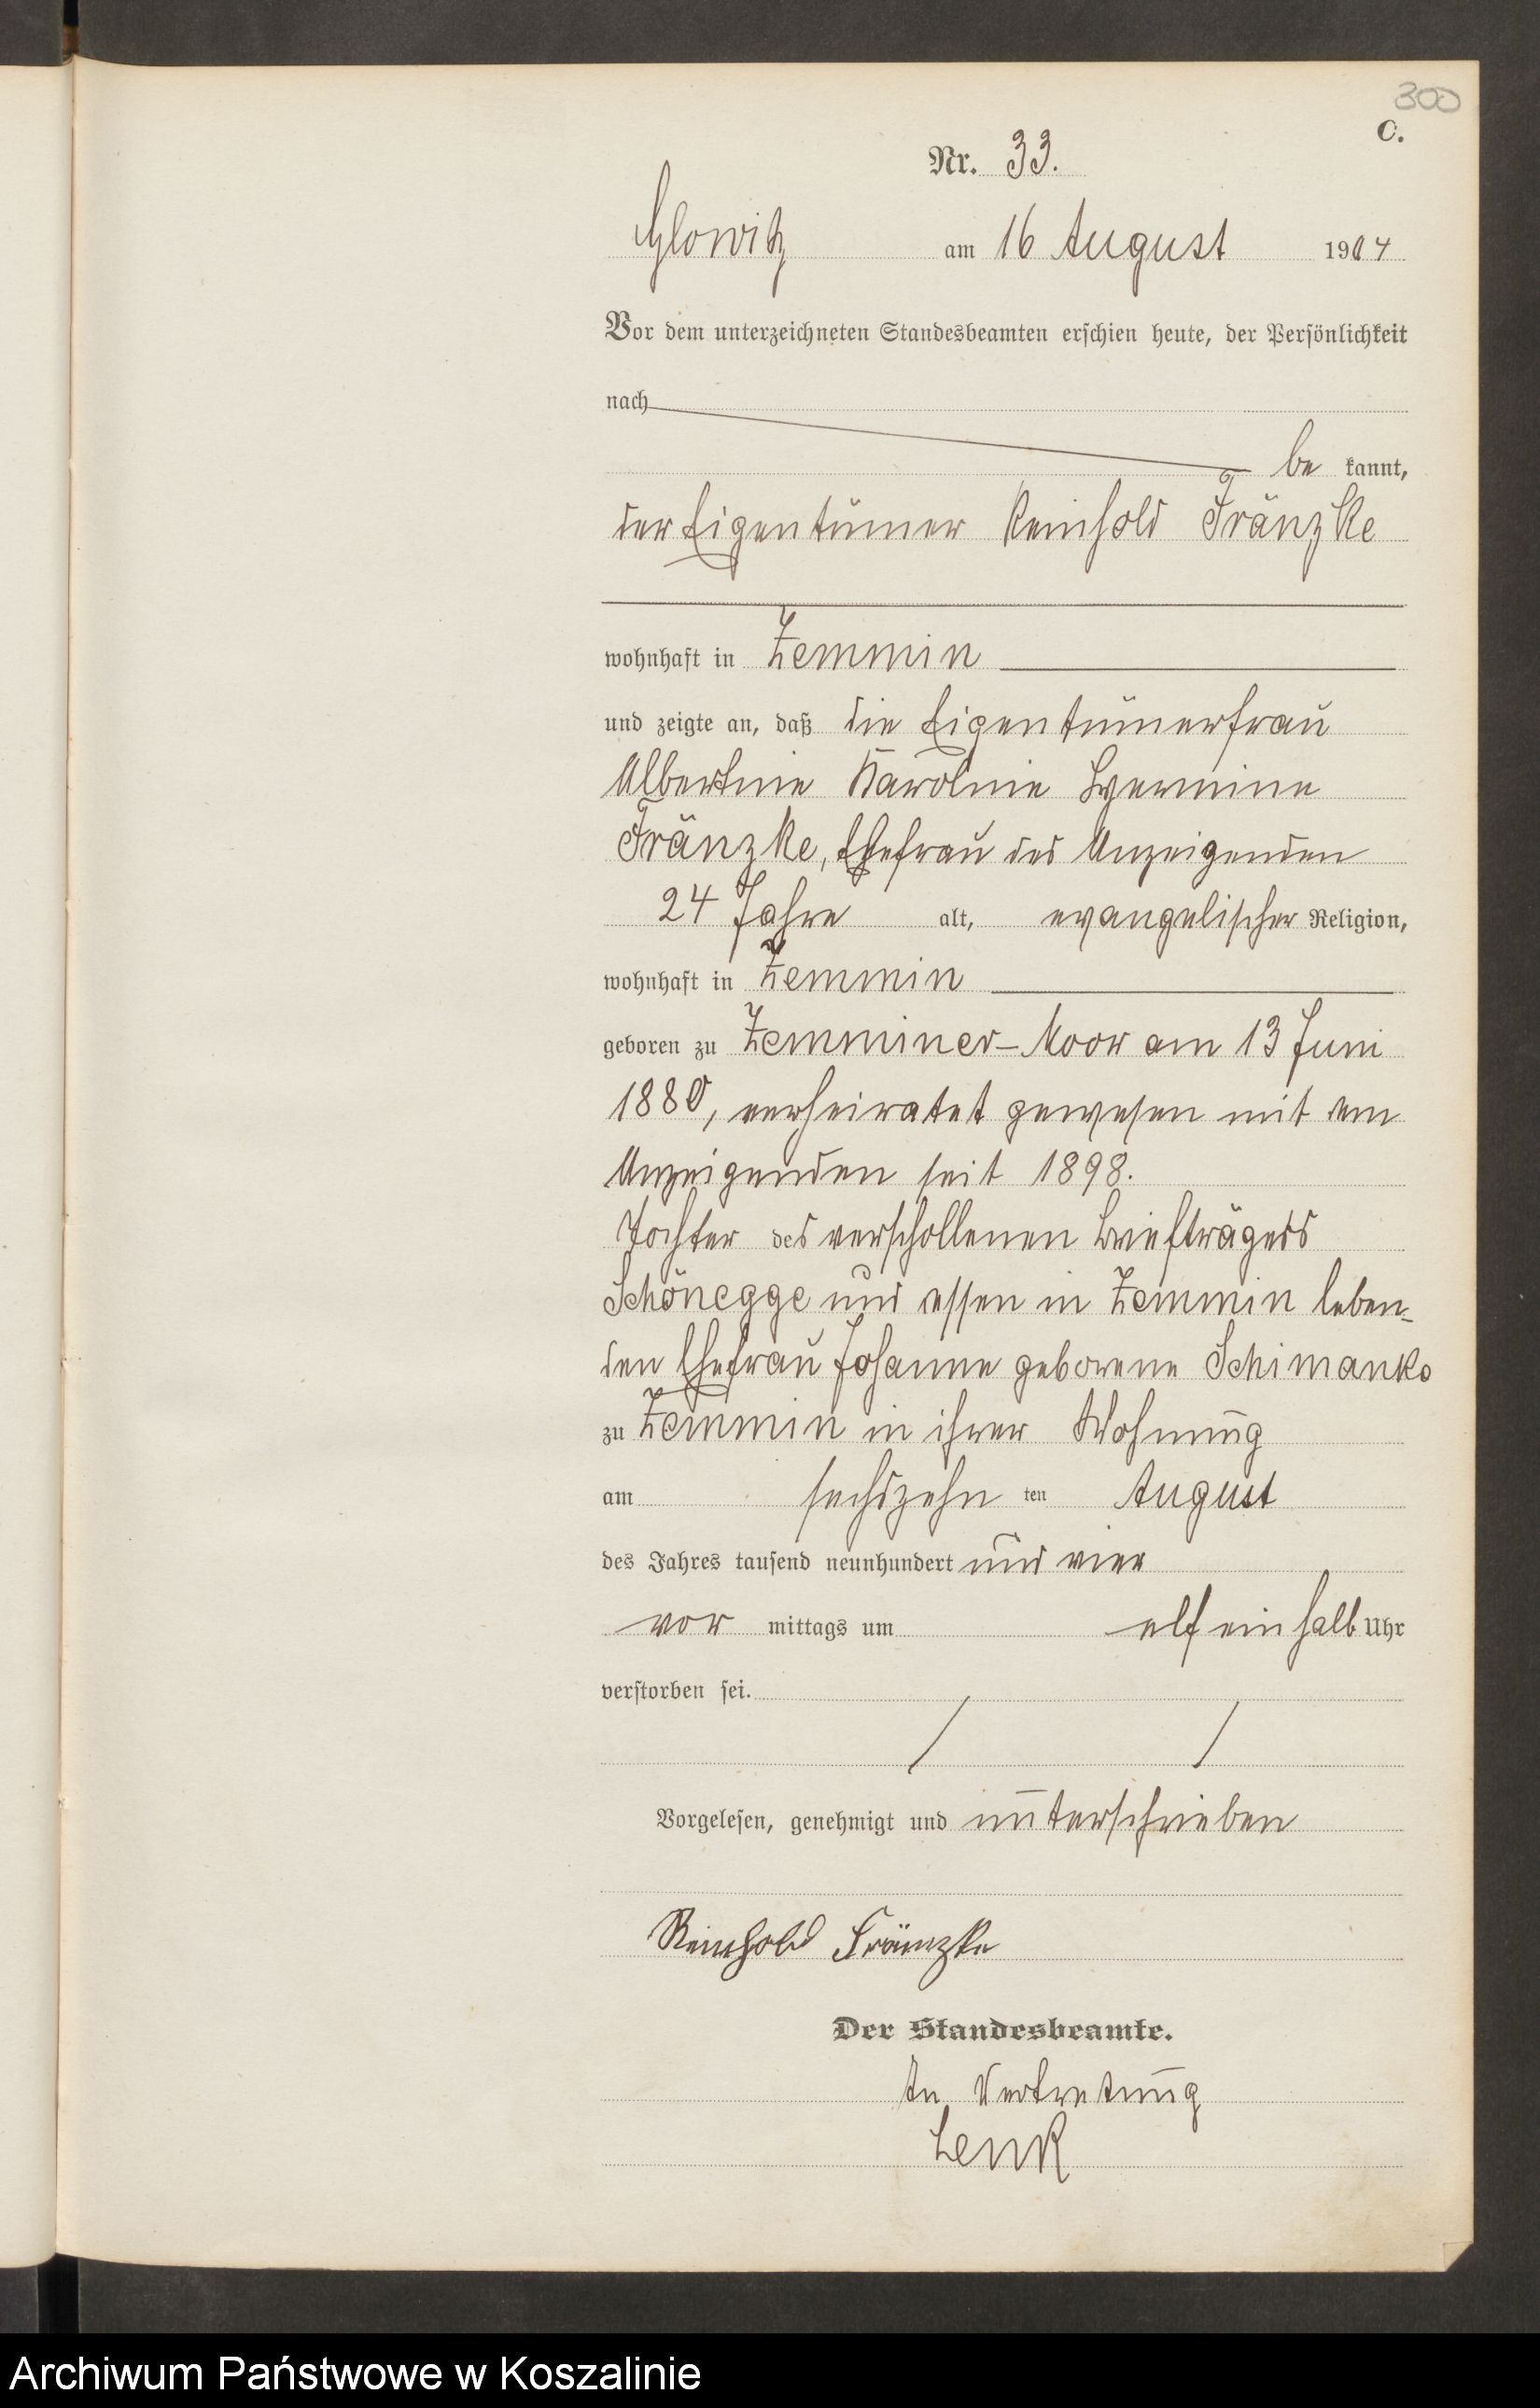 300
C.
Nr. 33.
Glowitz am 16 August 1904
Vor dem unterzeichneten Standesbeamten erschien heute, der Persönlichkeit
nach
be kannt,
der Eigentümer Reinhold Fränzke
wohnhaft in Zemmin
und zeigte an, daß die Eigentümerfrau
Albertine Karoline Hermine
Fränzke, Ehefrau des Anzeigenden
24 Jahre alt, evangelischer Religion,
wohnhaft in Zemmin
geboren zu Zemminer-Moor am 13 Juni
1880, verheiratet gewesen mit dem
Anzeigenden seit 1898.
Tochter des verschollenen Briefträgers
Schönegge und dessen in Zemmin leben-
den Ehefrau Johanne geborene Schimanko
zu Zemmin in ihrer Wohnung
am sechszehn ten August
des Jahres tausend neunhundert und vier
vor mittags um elf ein halb Uhr
verstorben sei.
Vorgelesen, genehmigt und unterschrieben
Reinhold Fränzke
Der Standesbeamte.
In Vertretung
Lenk
Archiwum Państwowe w Koszalinie